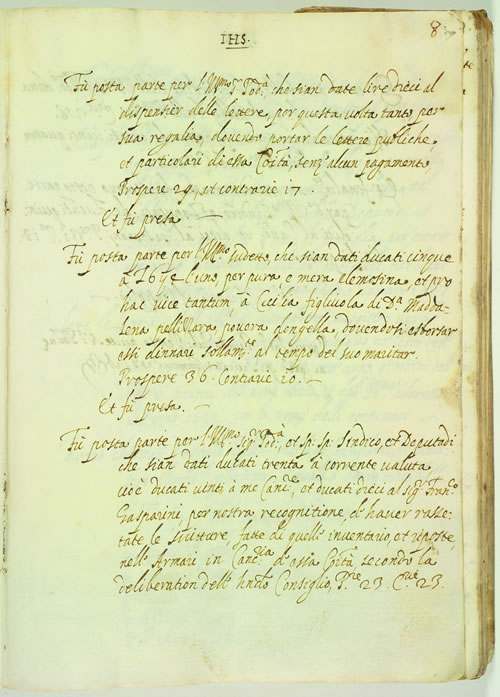 8.
IHS.
Fù posta parte per l'Ill.mo S.r Pod.à che sian date lire dieci al
dispensier delle lettere, per questa volta tanto, per
sua regalia, dovendo portar le lettere publiche,
et particolari di essa Co̅ità, senz'alcun pagamento
Prospere 29, et contrarie 17.
Et fù presa —
Fù posta parte per l'Ill.mo sudetto, che sian dati ducati cinque
à L 6 y 4 l'uno, per pura, e mera elemosina, et pro
hac vice tantum, à Cecilia figliuola di D.a Madda-
lena pellizzara, povera dongella, dovendosi esborsar
essi dinnari sollam.te al tempo del suo maritar.
Prospere 36 Contrarie 10. —
Et fù presa. —
Fù posta parte per l'Ill.mo Sig.r Pod.à, et Sp. Sp. Sindico, et Deputadi
che sian dati ducati trenta à corrente valuta
cioè ducati vinti à me Canc.e et ducati dieci al sig.r Fran.co
Gasparini, per nostra recognitione, d'haver rasse-
tate le scritture, fatte di quelle inventario, et riposte
nell'Armari in Canc.ria d'essa Co̅ità secondo la
deliberation dell' Consiglio, P.re 23. C.rie 23.